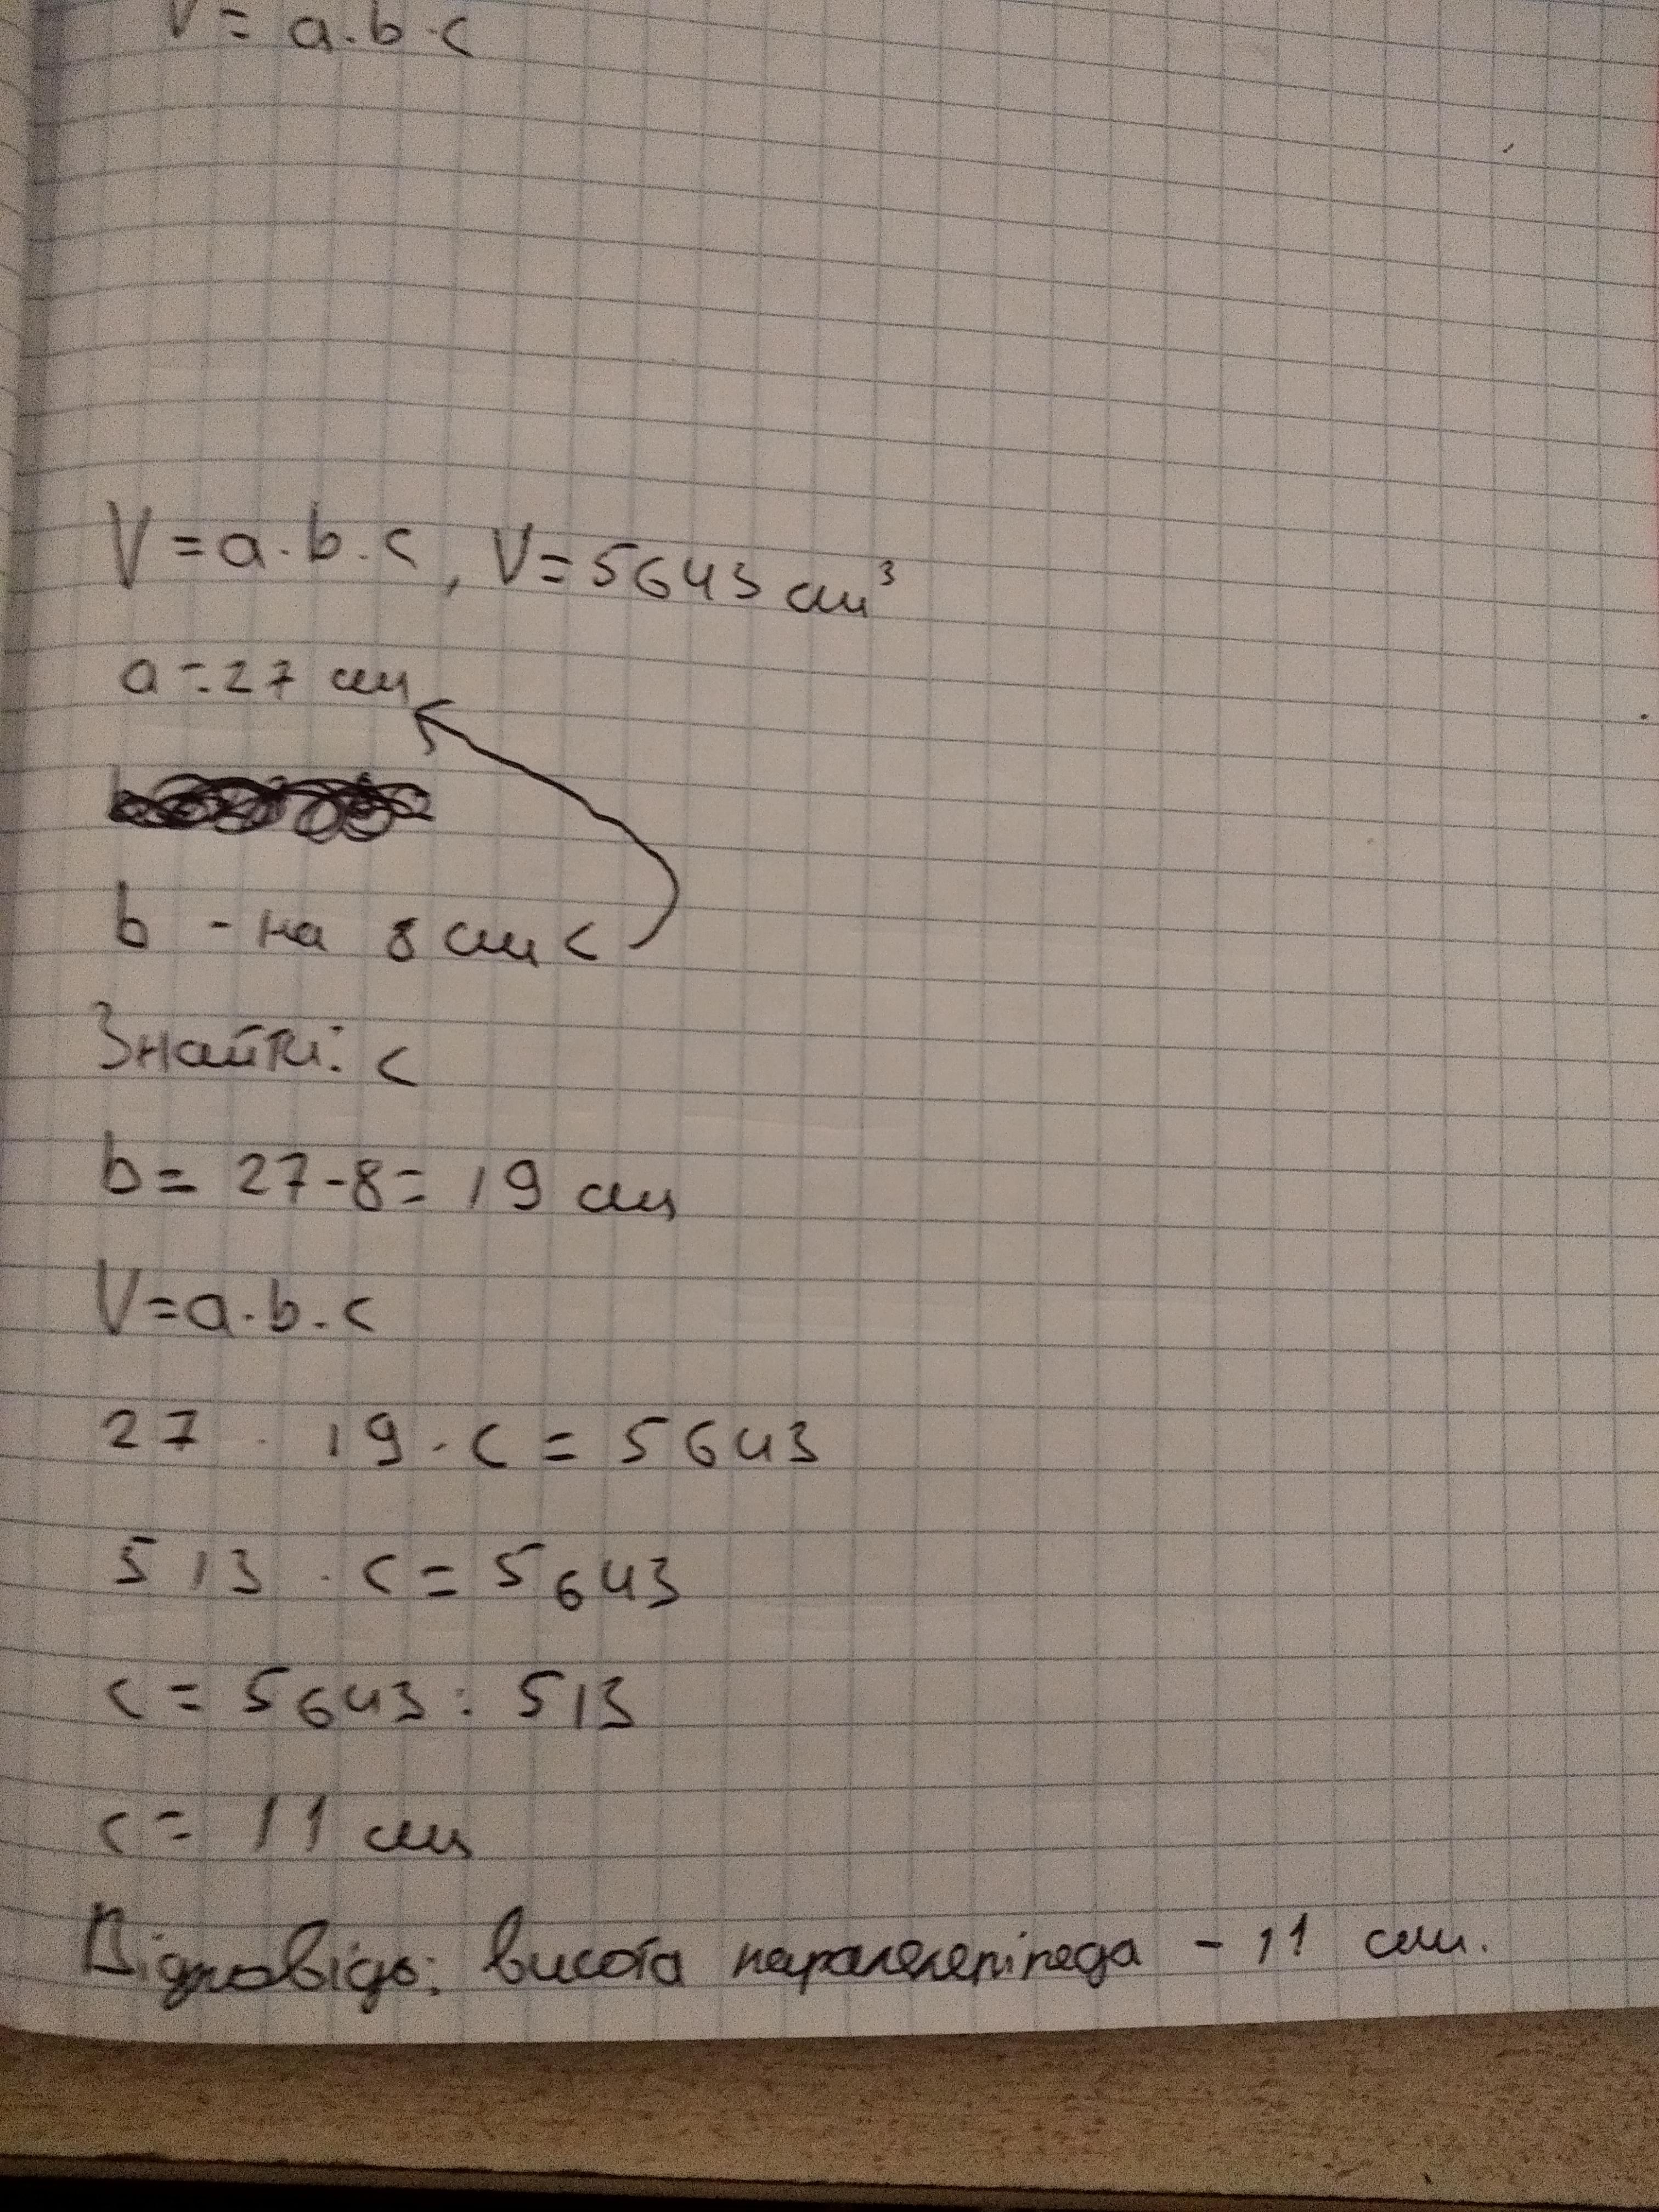 V = a·b·c
V = a·b·c, V = 5643 см³
a = 27 см
b - на 8 см <
Знайти: c
b = 27 - 8 = 19 см
V = a·b·c
27 · 19 · c = 5643
513 · c = 5643
c = 5643 : 513
c = 11 см
Відповідь: висота паралелепіпеда - 11 см.